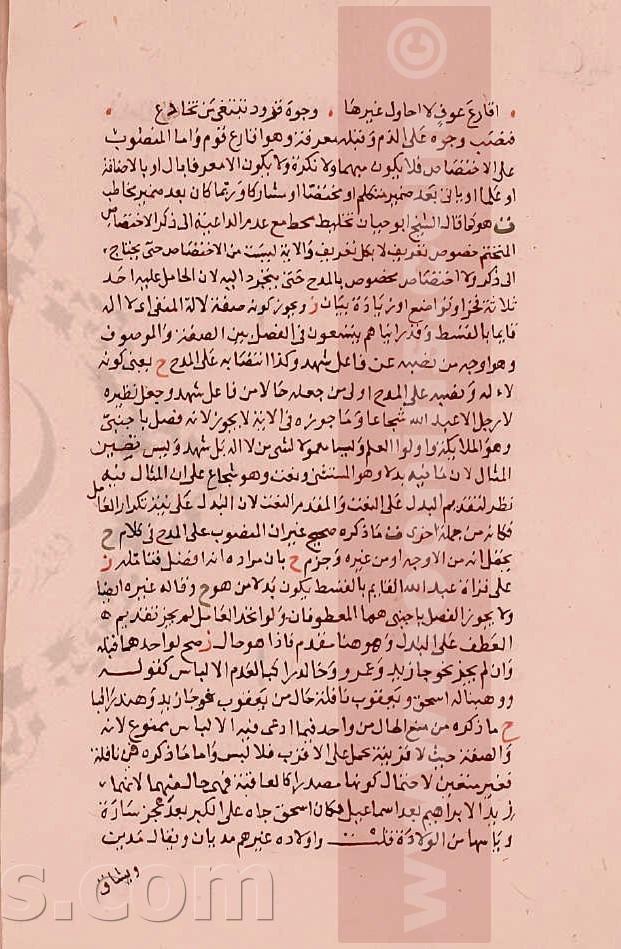 اقارع عوف لا احاول غيرها وجوه قرود تبتغي من تخادع
فنصب وجوه على الذم وقبله معرفة وهو اقارع قوم واما المنصوب
على الاختصاص فلا يكون مبهما ولا نكرة ولا يكون الا معرفا بال او بالاضافة
او علما او باي بعد ضمير متكلم او مختصا او مشاركا وربما كان بعد ضمير مخاطب
هو فما قاله الشيخ ابو حيان تخليط محط مع عدم الداعية الى ذكر الاختصاص
خصوص تعريف لا بكل تعريف والاية ليست من الاختصاص حتى يحتاج
الى ذكره ولا اختصاص مخصوص بالمدح حتى ينجرد اليه لان الحامل عليه احد
ثلاثة فخر او تواضع او زيادة بيان ز ويجوز كونه صفة للاله المنفي اي لا اله
قايما بالقسط وقد رايناهم يتسعون في الفصل بين الصفة والموصوف
وهو اوجه من نصبه عن فاعل شهد وكذا انتصابه على المدح ح يعني كونه
لاله ونصبه على المدح اولى من جعله حالا من فاعل شهد وجعل نظيره
لا رجل الا عبد الله شجاعا وما جوزه في الاية لا يجوز لانه فصل باجنبي
وهو الملايكة واولوا العلم وليسا معمولا لشي من لا اله بل شهد وليس نظير
المثال لان ما فيه بدلا وهو المستثنى ونعت وهو شجاع على ان المثال فيه
نظر لتقديم البدل على النعت والمقدم النعت لان البدل على نية تكرار العامل
فكانه من جملة اخرى ف ما ذكره صحيح غير ان المنصوب على المدح في كلام ح
يحتمل انه من الاوجه او من غيره وجزم ح بان مراده انه افضل فتامله ز
على قراة عبد الله القايم بالقسط يكون بدلا من هو ح وقاله غيره ايضا
ولا يجوز الفصل باجنبي هما المعطوفان ولو اتحد العامل لم يجز تقديم
العطف على البدل وهو هنا مقدم فاذا هو حال ز صح لواحدهما قبله
وان لم يجز نحو جا زيد وعمرو وخالد راكبا لعدم الالباس كقوله
ووهبنا له اسحق ويعقوب نافلة حال من يعقوب نحو جا زيد وهند راكبا
ح ما ذكره من منع الحال من واحد فيما ادعى فيه الالباس ممنوع لانه
والصفة حيث لا قرينة يحمل على الاقرب فلا لبس واما ما ذكره في نافلة
فغير متعين لاحتمال كونها مصدرا كالعافية فهي حال منهما لانهما
زيدا لابراهيم بعد اسماعيل فكان اسحق جاه على الكبر بعد عجز سارة
وياسها من الولادة قلت واولاده غيرهم مديان ويقال مدين